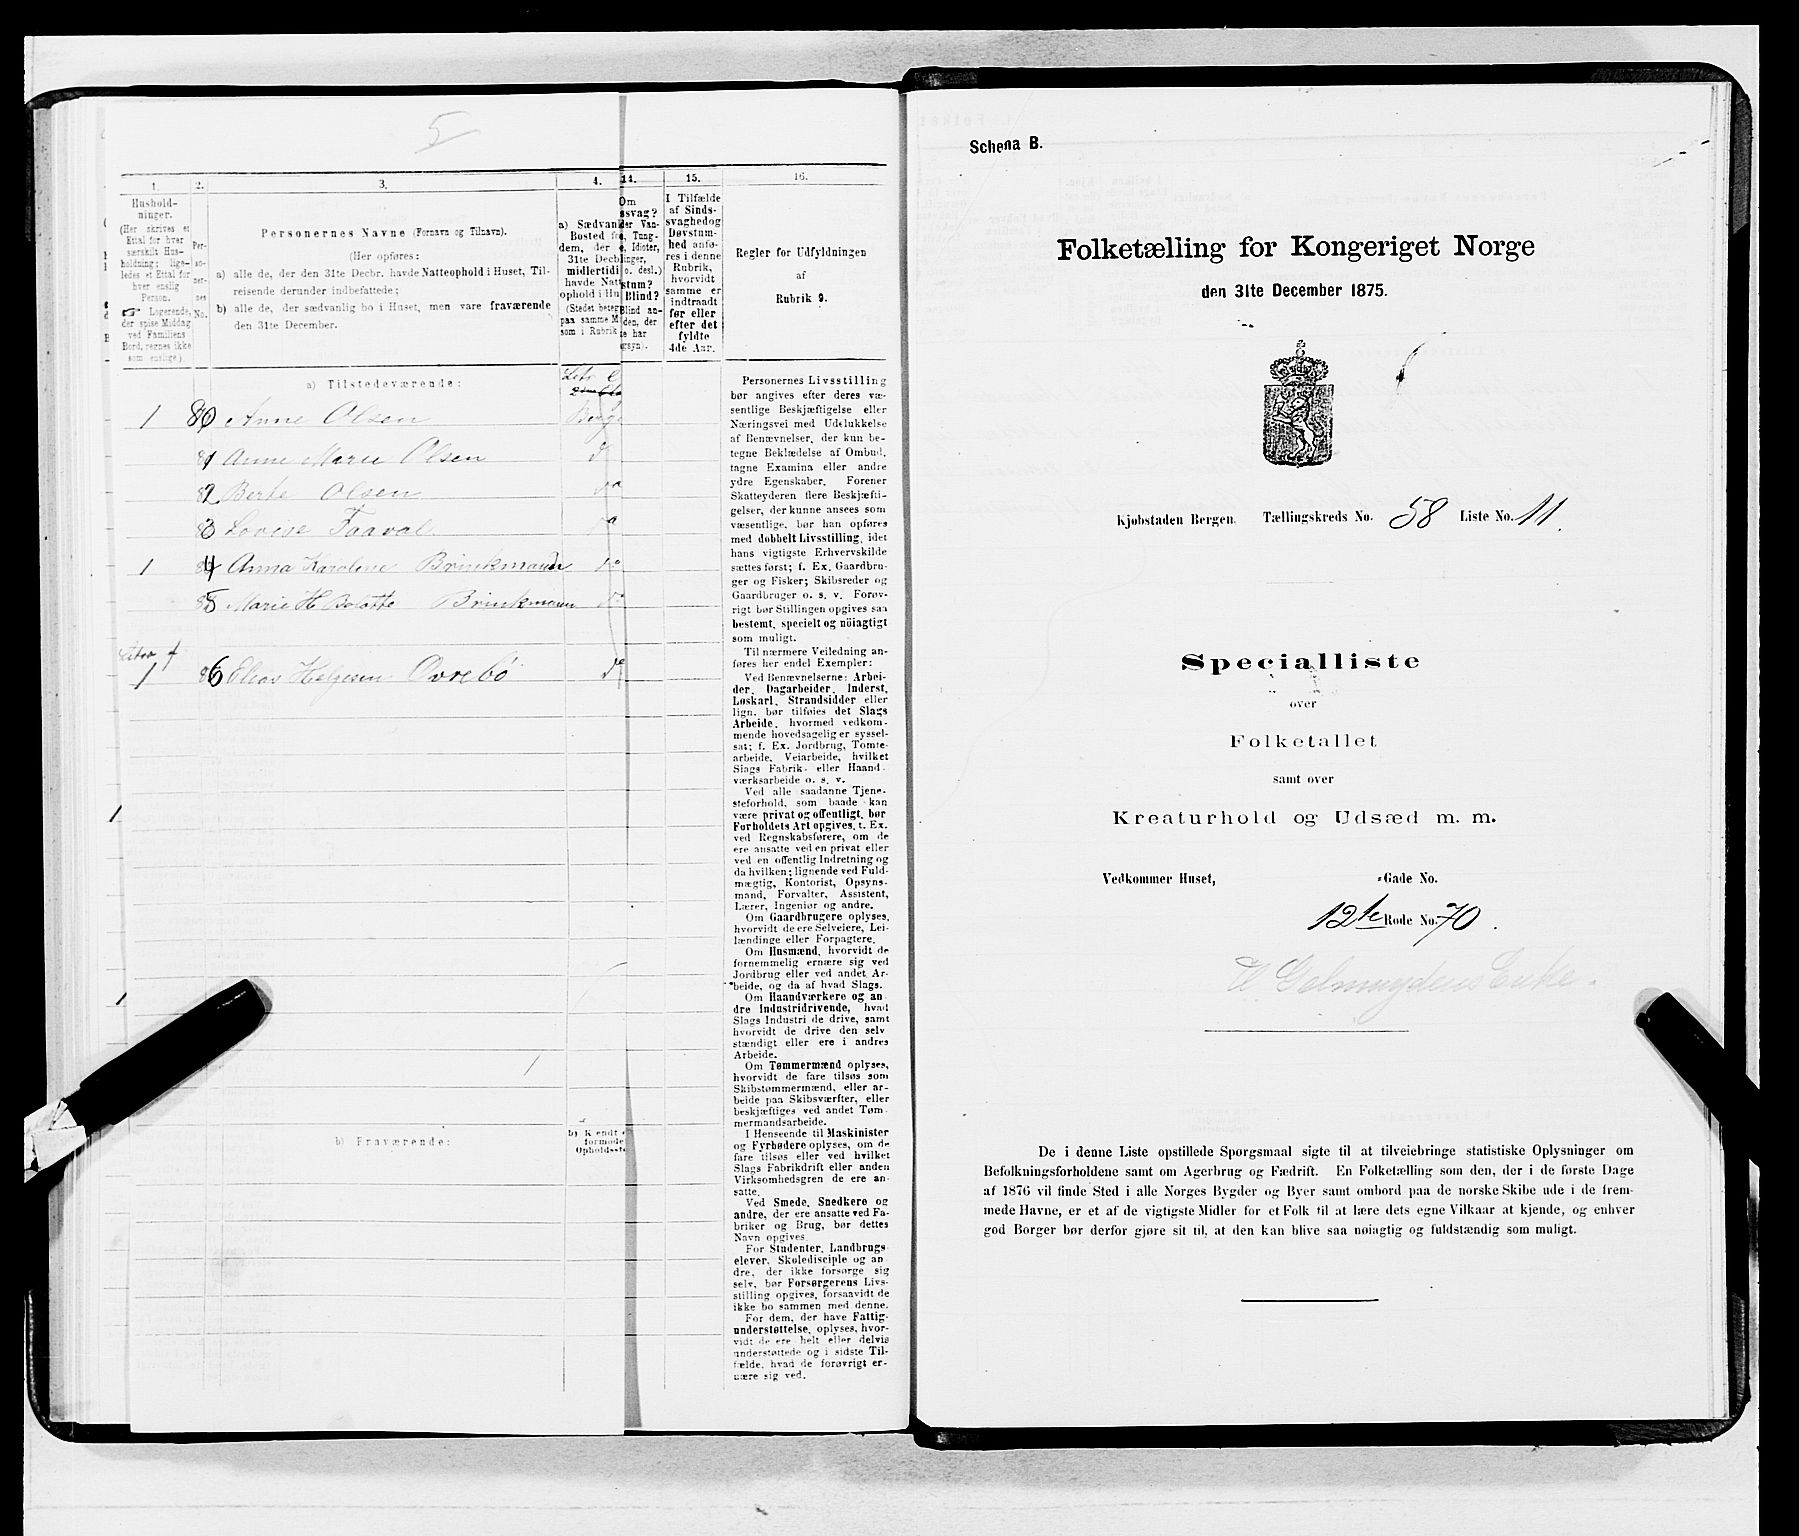 5
1.
2.
3.
4.
14.
15.
16.
Hushold-
ninger.
(Her skrives et
Ettal for hver
særskilt Hus-
holdning; lige-
ledes et Ettal for
hver enslig
Person.
Logerende,
der spise Middag
ved Familiens
Bord, regnes ikke
som enslige).
Per-
so-
ner-
nes
No.
Personernes Navne (Fornavn og Tilnavn).
(Her opføres:
a) alle de, der den 31te Decbr. havde Natteophold i Huset, Til-
reisende derunder indbefattede;
b) alle de, der sædvanlig bo i Huset, men vare fraværende
den 31te December.
a) Sædvan
Bosted fo
dem, der
31te Decb
midlertidi
havde Natt
ophold i Hu
(Stedet beteg
paa samme M
som i Rubrik
Om
ssvag?
der Van-
e, Tung-
e, Idioter,
linger,
o. desl.)
stum?
Blind?
Blind an-
den, der
te har
gsyn).
I Tilfælde
af Sinds-
svaghed og
Døvstum-
hed anfø-
res i denne
Rubrik,
hvorvidt
samme er
indtraadt
før eller
efter det
fyldte
4de Aar.
Regler for Udfyldningen
af
Rubrik 9.
a) Tilstedeværende:
1 80 Anne Olsen Berg
81 Anne Marie Olsen do
82 Berte Olsen do
83 Lovise Faaval do
1 84 Anna Karoline Brinkmann do
85 Marie H Brinkmann do
1 86 Elias Helgesen Ovrebö do
b) Fraværende:
b) Kendt e
formode
Opholdsste
Personernes Livsstilling
bør angives efter deres væ-
sentlige Beskjæftigelse eller
Næringsvei med Udelukkelse
af Benævnelser, der kun be-
tegne Beklædelse af Ombud,
tagne Examina eller andre
ydre Egenskaber. Forener
Skatteyderen flere Beskjæfti-
gelser, der kunne ansees som
væsentlige, bør han opføres
med dobbelt Livsstilling, idet
hans vigtigste Erhvervskilde
sættes først; f. Ex. Gaardbru-
ger og Fisker; Skibsreder og
Gaardbruger o. s. v. Forøv-
rigt bør Stillingen opgives saa
bestemt, specielt og nöiagtigt
som muligt.
Til nærmere Veiledning an-
føres her endel Exempler:
Ved Benævnelserne: Arbei-
der, Dagarbeider, Inderst,
Løskarl, Strandsidder eller
lign. bør tilføies det Slags
Arbeide, hvormed vedkom-
mende hovedsagelig er syssel-
sat; f. Ex. Jordbrug, Tomte-
arbeide, Veiarbeide, hvilket
Slags Fabrik- eller Haand-
værksarbeide o. s. v.
Ved alle saadanne Tjene-
steforhold, som baade kan
være privat og offentligt, bør
Forholdets Art opgives, t. Ex.
ved Regnskabsførere, om de
ere ansatte ved en privat eller
ved en offentlig Indretning og
da hvilken; lignende ved Fuld-
mægtig, Kontorist, Opsyns-
mand, Forvalter, Assistent,
Lærer, Ingeniør og andre.
Om Gaardbrugere oplyses,
hvorvidt de ere Selveiere, Lei-
lændinge eller Forpagtere.
Om Husmænd, hvorvidt de
fornemmelig ernære sig ved
Jordbrug eller ved andet Ar-
beide, og da af hvad Slags.
Om Haandværkere og an
dre Industridrivende, hvad
Slags Industri de drive, samt
hvorvidt de drive den selv
stændigt eller ere i andres
Arbeide.
Om Tømmermænd oplyses,
hvorvidt de fare tilsøs som
Skibstømmermænd, eller ar-
beide paa Skibsværfter, eller
beskjæftiges ved andet Tøm-
mermandsarbeide.
I Henseende til Maskinister
og Fyrbødere oplyses, om de
fare tilsøs eller ved hvilket
Slags Fabrikdrift eller anden
Virksomhedsgren de ere an-
satte.
Ved Smede, Snedkere og
andre, der ere ansatte ved Fa-
briker og Brug, bør dettes
Navn opgives.
For Studenter, Landbrugs-
elever, Skoledisciple og an-
dre, der ikke forsørge sig
selv, bør Forsørgerens Livs-
stilling opgives, forsaavidt de
ikke bo sammen med denne.
For dem, der have Fattig-
understøttelse, oplyses, hvor-
vidt de ere helt eller delvis
understøttede og i sidste Til-
fælde, hvad de forøvrigt er-
nære sig ved.
Schema B.
Folketælling for Kongeriget Norge
den 31te December 1875.
Kjøbstaden Bergen. Tællingskreds No. 58 Liste No. 11.
Specialliste
over
Folketallet
samt over
Kreaturhold og Udsæd m. m.
Vedkommer Huset, -Gade No.
12te Rode No. 70.
Gelmuydens Enke.
De i denne Liste opstillede Spørgsmaal sigte til at tilveiebringe statistiske Oplysninger om
Befolkningsforholdene samt om Agerbrug og Fædrift. En Folketælling som den, der i de første Dage
af 1876 vil finde Sted i alle Norges Bygder og Byer samt ombord paa de norske Skibe ude i de frem-
mede Havne, er et af de vigtigste Midler for et Folk til at lære dets egne Vilkaar at kjende, og enhver
god Borger bør derfor gjøre sit til, at den kan blive saa nøiagtig og fuldstændig som muligt.